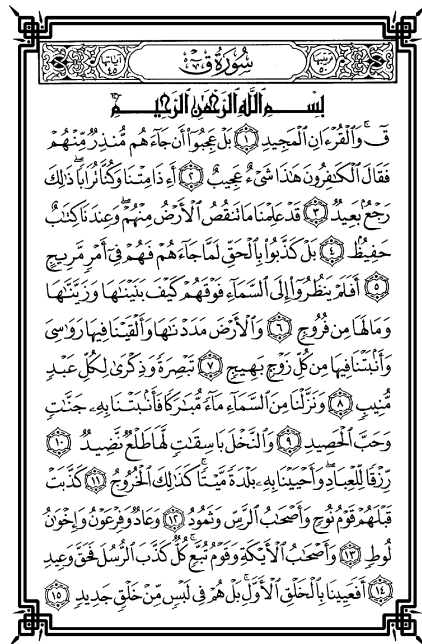 ترتيبها ٥٠ سُورَةُ قٓ آياتها ٤٥
بِسْمِ اللَّهِ الرَّحْمَٰنِ الرَّحِيمِ
قٓ ۚ وَالْقُرْءَانِ الْمَجِيدِ ١ بَلْ عَجِبُوٓا۟ أَن جَآءَهُم مُّنذِرٌ مِّنْهُمْ
فَقَالَ الْكَٰفِرُونَ هَٰذَا شَىْءٌ عَجِيبٌ ٢ أَءِذَا مِتْنَا وَكُنَّا تُرَابًا ۖ ذَٰلِكَ
رَجْعٌۢ بَعِيدٌ ٣ قَدْ عَلِمْنَا مَا تَنقُصُ الْأَرْضُ مِنْهُمْ ۖ وَعِندَنَا كِتَٰبٌ
حَفِيظٌۢ ٤ بَلْ كَذَّبُوا۟ بِالْحَقِّ لَمَّا جَآءَهُمْ فَهُمْ فِىٓ أَمْرٍ مَّرِيجٍ
٥ أَفَلَمْ يَنظُرُوٓا۟ إِلَى السَّمَآءِ فَوْقَهُمْ كَيْفَ بَنَيْنَٰهَا وَزَيَّنَّٰهَا
وَمَا لَهَا مِن فُرُوجٍ ٦ وَالْأَرْضَ مَدَدْنَٰهَا وَأَلْقَيْنَا فِيهَا رَوَٰسِىَ
وَأَنۢبَتْنَا فِيهَا مِن كُلِّ زَوْجٍۭ بَهِيجٍ ٧ تَبْصِرَةً وَذِكْرَىٰ لِكُلِّ عَبْدٍ
مُّنِيبٍ ٨ وَنَزَّلْنَا مِنَ السَّمَآءِ مَآءً مُّبَٰرَكًا فَأَنۢبَتْنَا بِهِۦ جَنَّٰتٍ
وَحَبَّ الْحَصِيدِ ٩ وَالنَّخْلَ بَاسِقَٰتٍ لَّهَا طَلْعٌ نَّضِيدٌ ١٠
رِّزْقًا لِّلْعِبَادِ ۖ وَأَحْيَيْنَا بِهِۦ بَلْدَةً مَّيْتًا ۚ كَذَٰلِكَ الْخُرُوجُ ١١ كَذَّبَتْ
قَبْلَهُمْ قَوْمُ نُوحٍ وَأَصْحَٰبُ الرَّسِّ وَثَمُودُ ١٢ وَعَادٌ وَفِرْعَوْنُ وَإِخْوَٰنُ
لُوطٍ ١٣ وَأَصْحَٰبُ الْأَيْكَةِ وَقَوْمُ تُبَّعٍ ۚ كُلٌّ كَذَّبَ الرُّسُلَ فَحَقَّ وَعِيدِ
١٤ أَفَعَيِينَا بِالْخَلْقِ الْأَوَّلِ ۚ بَلْ هُمْ فِى لَبْسٍ مِّنْ خَلْقٍ جَدِيدٍ ١٥